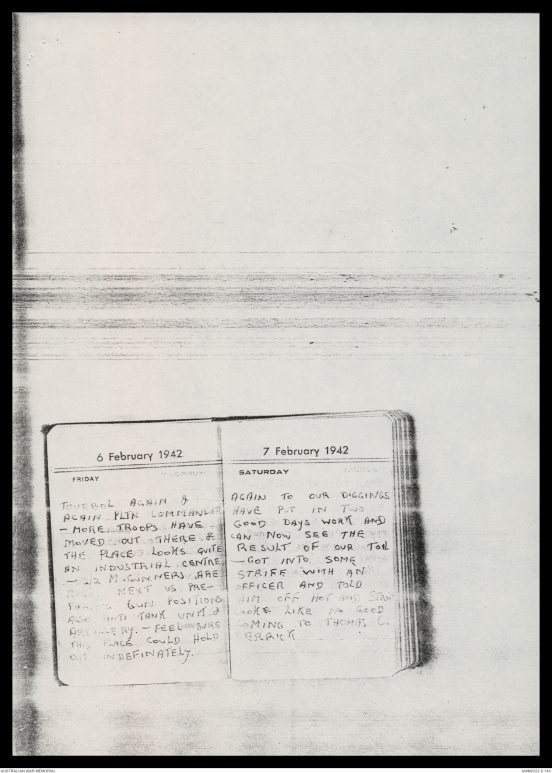 6 February 1942
FRIDAY
TOURBOL AGAIN &
AGAIN PLTN COMMANDER
- MORE TROOPS HAVE
MOVED OUT THERE &
THE PLACE LOOKS QUITE
AN INDUSTRIAL CENTRE
- 22 M. GUNNERS ARE
NEXT US PRE-
PARING GUN POSITIONS
ALSO ANTI TANK UNIT &
ARTILLERY. - FEEL SURE
THIS PLACE COULD HOLD
OUT INDEFINATELY.
7 February 1942
SATURDAY
AGAIN TO OUR DIGGINGS
HAVE PUT IN TWO
GOOD DAYS WORK AND
CAN NOW SEE THE
RESULT OF OUR TOIL
- GOT INTO SOME
STRIFE WITH AN
OFFICER AND TOLD
HIM OFF HOT AND
LOOKS LIKE NO GOOD
COMING TO THOMAS C.
DERRICK
AUSTRALIAN WAR MEMORIAL